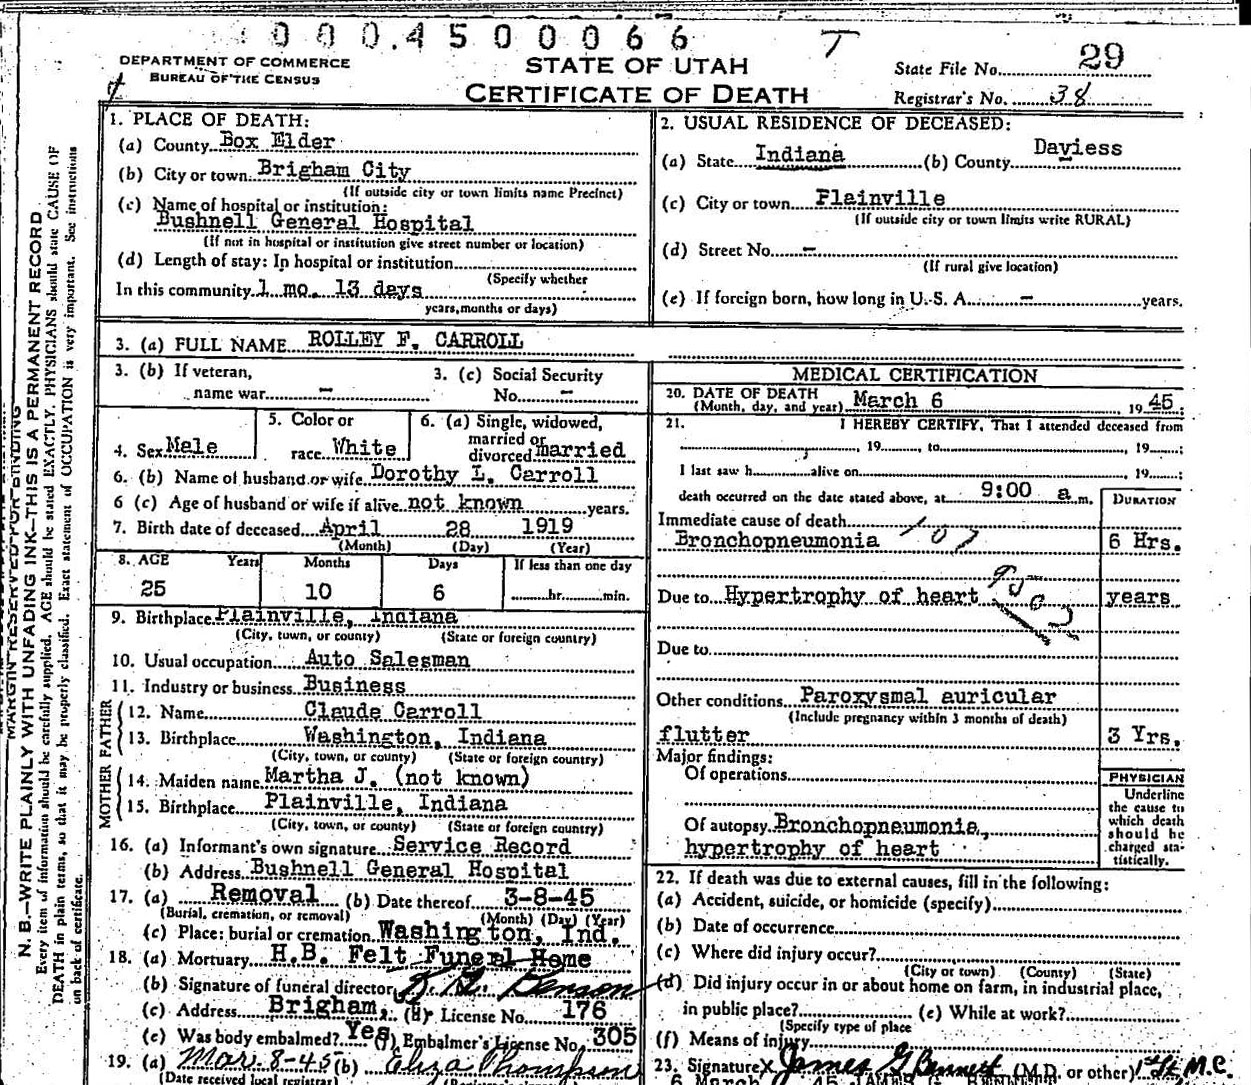 000.4500066 T
DEPARTMENT OF COMMERCE
BUREAU OF THE CENSUS
STATE OF UTAH
CERTIFICATE OF DEATH
State File No. 29
Registrar's No. 38
N. B.—WRITE PLAINLY WITH UNFADING INK—THIS IS A PERMANENT RECORD
Every item of information should be carefully supplied. AGE should be stated EXACTLY. PHYSICIANS should state CAUSE OF
DEATH in plain terms, so that it may be properly classified. Exact statement of OCCUPATION is very important. See instructions
on back of certificate.
1. PLACE OF DEATH:
(a) County Box Elder
(b) City or town Brigham City
(If outside city or town limits name Precinct)
(c) Name of hospital or institution:
Bushnell General Hospital
(If not in hospital or institution give street number or location)
(d) Length of stay: In hospital or institution
(Specify whether
In this community 1 mo. 13 days
years, months or days)
2. USUAL RESIDENCE OF DECEASED:
(a) State Indiana (b) County Daviess
(c) City or town Plainville
(If outside city or town limits write RURAL)
(d) Street No. –
(If rural give location)
(e) If foreign born, how long in U. S. A. – years.
3. (a) FULL NAME ROLLEY F. CARROLL
3. (b) If veteran,
name war –
3. (c) Social Security
No. –
4. Sex Male
5. Color or
race White
6. (a) Single, widowed,
married or
divorced married
6. (b) Name of husband or wife Dorothy L. Carroll
6 (c) Age of husband or wife if alive not known years.
7. Birth date of deceased April 28 1919
(Month) (Day) (Year)
8. AGE Years Months Days If less than one day
25 10 6 hr. min.
9. Birthplace Plainville, Indiana
(City, town, or county) (State or foreign country)
10. Usual occupation Auto Salesman
11. Industry or business Business
FATHER
12. Name Claude Carroll
13. Birthplace Washington, Indiana
(City, town, or county) (State or foreign country)
MOTHER
14. Maiden name Martha J. (not known)
15. Birthplace Plainville, Indiana
(City, town, or county) (State or foreign country)
16. (a) Informant's own signature Service Record
(b) Address Bushnell General Hospital
17. (a) Removal (b) Date thereof 3-8-45
(Burial, cremation, or removal) (Month) (Day) (Year)
(c) Place: burial or cremation Washington, Ind.
18. (a) Mortuary H.B. Felt Funeral Home
(b) Signature of funeral director Benson
(c) Address Brigham, License No. 176
(e) Was body embalmed? Yes (f) Embalmer's License No. 305
19. (a) Mar. 8-45 (b) Eliza Thompson
(Date received local registrar)
MEDICAL CERTIFICATION
20. DATE OF DEATH
(Month, day, and year) March 6, 1945
21. I HEREBY CERTIFY, That I attended deceased from
, 19 to , 19 ;
I last saw h alive on 19 ;
death occurred on the date stated above, at 9:00 a m.
DURATION
Immediate cause of death 107
Bronchopneumonia 6 Hrs.
Due to Hypertrophy of heart years
Due to
Other conditions Paroxysmal auricular
(Include pregnancy within 3 months of death)
flutter 3 Yrs.
Major findings:
Of operations
Of autopsy Bronchopneumonia,
hypertrophy of heart
PHYSICIAN
Underline
the cause to
which death
should be
charged sta-
tistically.
22. If death was due to external causes, fill in the following:
(a) Accident, suicide, or homicide (specify)
(b) Date of occurrence
(c) Where did injury occur?
(City or town) (County) (State)
(d) Did injury occur in or about home on farm, in industrial place,
in public place? (e) While at work?
(Specify type of place
(f) Means of injury
23. Signature X James G Bennett (M.D. or other) 1st Lt M.C.
6 March 45 JAMES G.